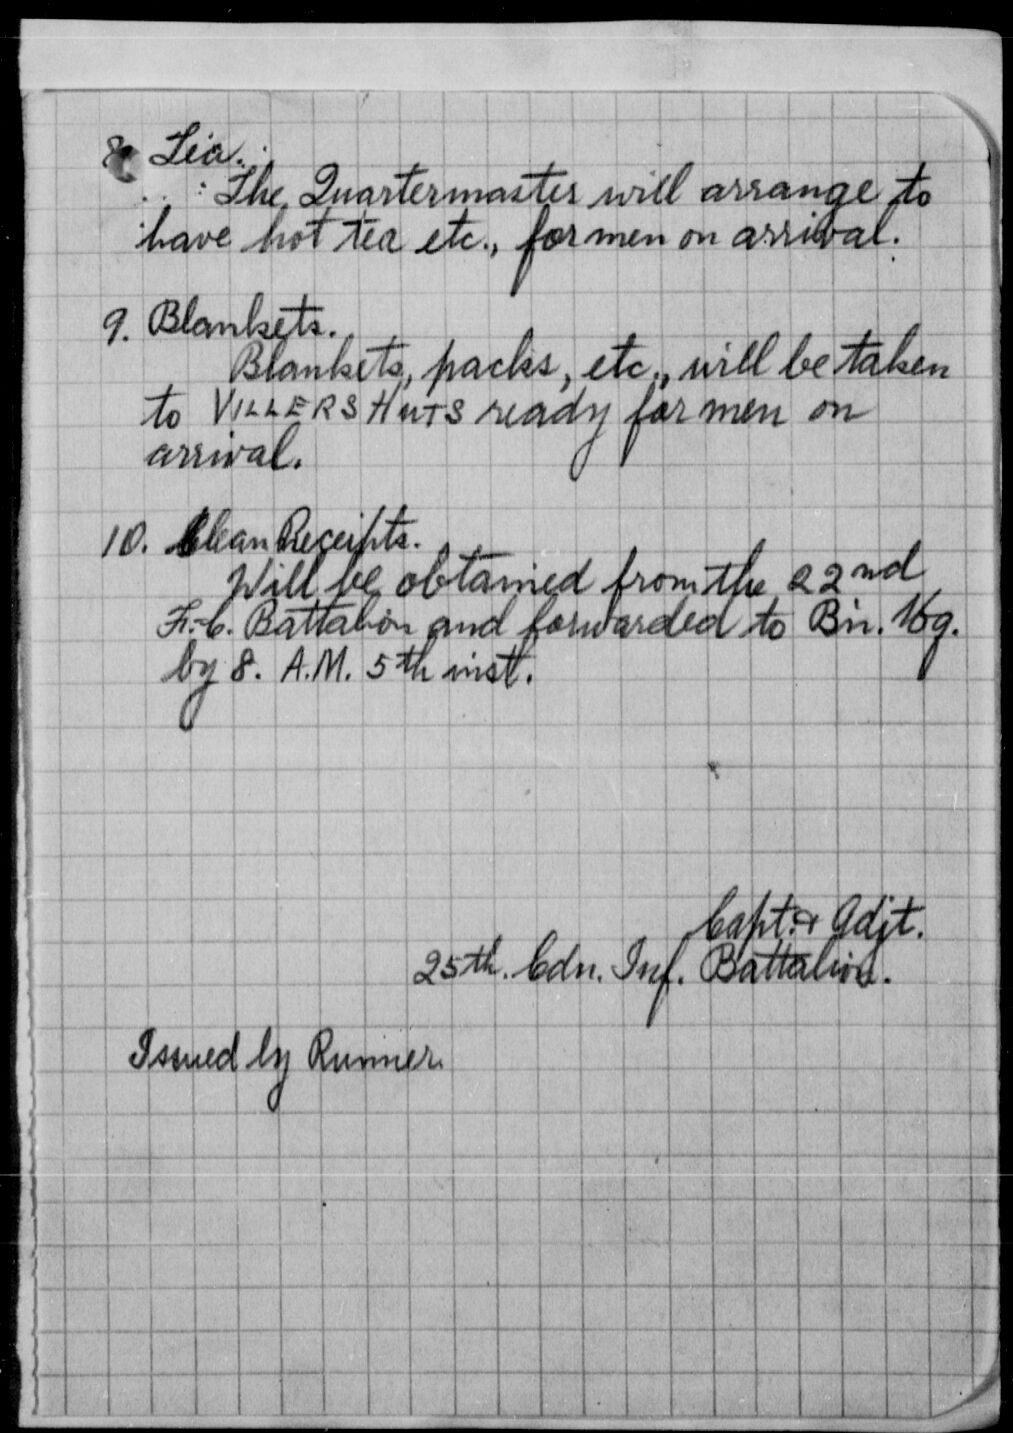 8. Tea.
The Quartermaster will arrange to
have hot tea etc., for men on arrival.
9. Blankets.
Blankets, packs, etc., will be taken
to VILLERS HUTS ready for men on
arrival.
10. Clean Receipts.
Will be obtained from the 22nd
F.-C. Battalion and forwarded to Bn. Hq.
by 8. A.M. 5th inst.
Capt. & Adjt.
25th. Cdn. Inf. Battalion.
Issued by Runner.